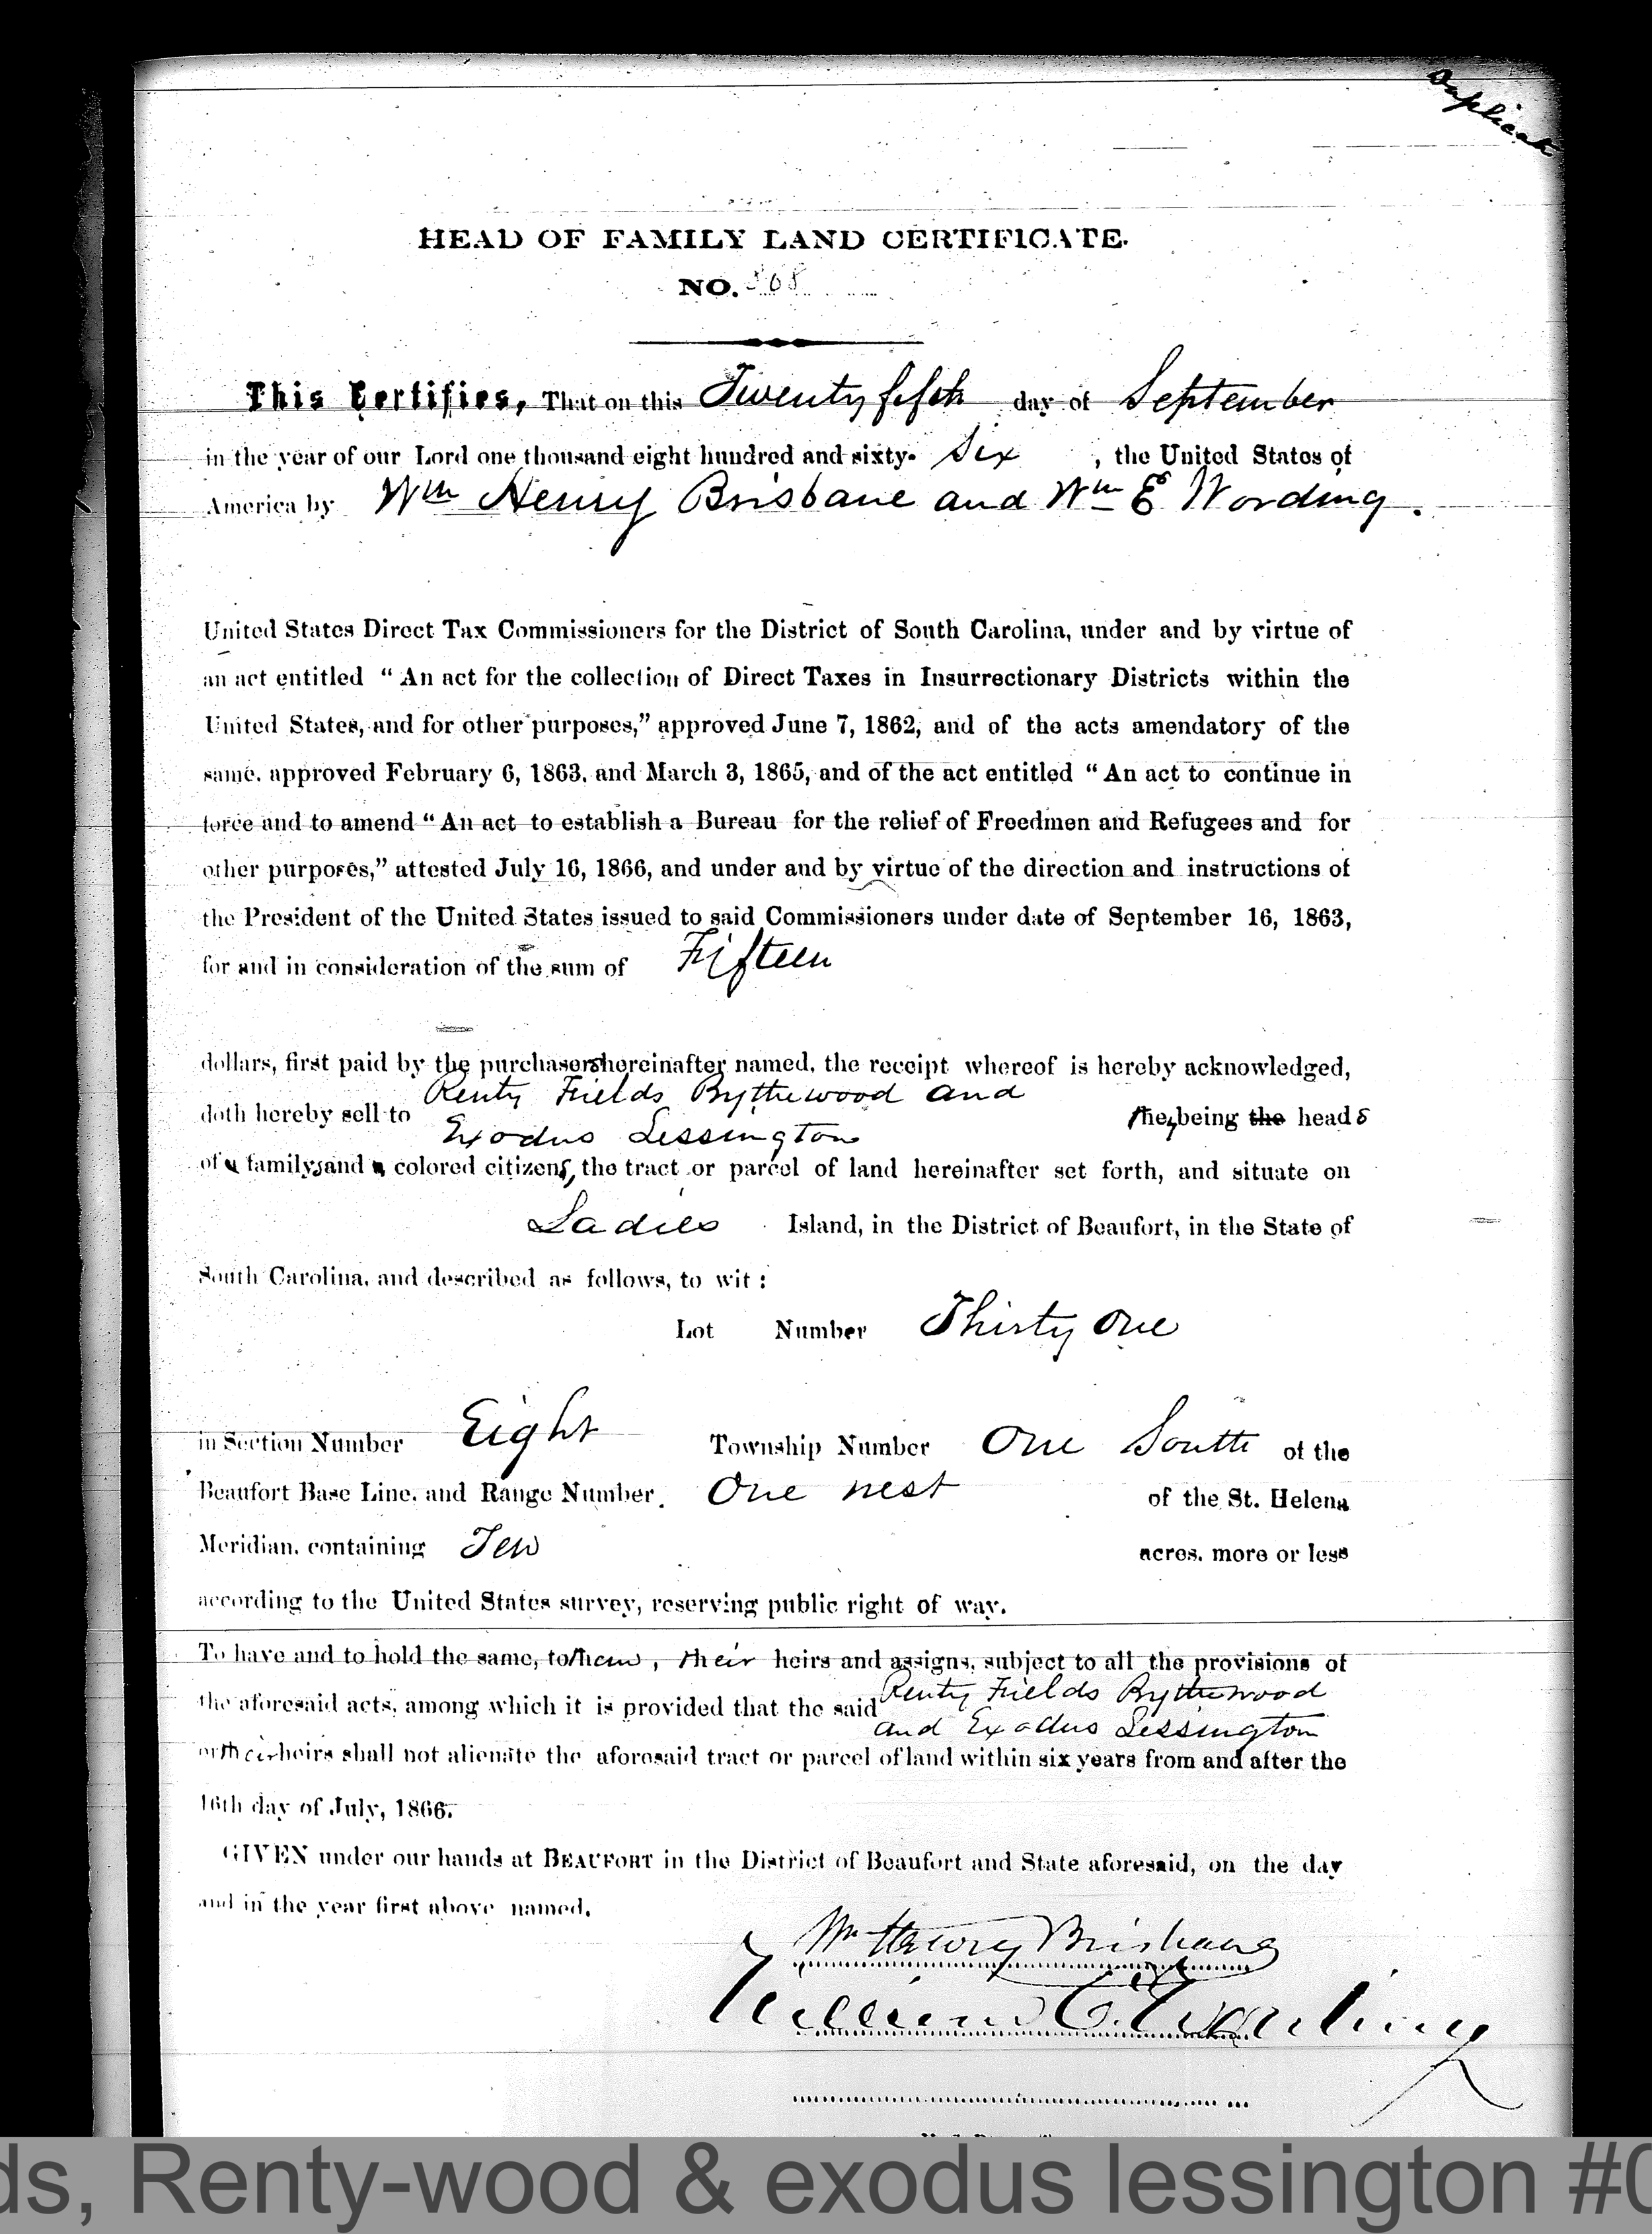 Duplicate
HEAD OF FAMILY LAND CERTIFICATE.
NO. 568
This Certifies, That on this Twenty fifth day of September
in the year of our Lord one thousand eight hundred and sixty- Six , the United States of
America by Wm Henry Brisbane and Wm E Wording .
United States Direct Tax Commissioners for the District of South Carolina, under and by virtue of
an act entitled “An act for the collection of Direct Taxes in Insurrectionary Districts within the
United States, and for other purposes,” approved June 7, 1862, and of the acts amendatory of the
same, approved February 6, 1863, and March 3, 1865, and of the act entitled “An act to continue in
force and to amend “An act to establish a Bureau for the relief of Freedmen and Refugees and for
other purposes,” attested July 16, 1866, and under and by virtue of the direction and instructions of
the President of the United States issued to said Commissioners under date of September 16, 1863,
for and in consideration of the sum of Fifteen
dollars, first paid by the purchasers hereinafter named, the receipt whereof is hereby acknowledged,
doth hereby sell to Renty Fields Bythewood and
Exodus Lessington they being the heads
of a familys and a colored citizens, the tract or parcel of land hereinafter set forth, and situate on
Ladies Island, in the District of Beaufort, in the State of
South Carolina, and described as follows, to wit :
Lot Number Thirty One
in Section Number Eight Township Number One South of the
Beaufort Base Line, and Range Number. One West of the St. Helena
Meridian, containing Ten acres, more or less
according to the United States survey, reserving public right of way.
To have and to hold the same, to them, their heirs and assigns, subject to all the provisions of
the aforesaid acts, among which it is provided that the said Renty Fields Bythewood
and Exodus Lessington
or their heirs shall not alienate the aforesaid tract or parcel of land within six years from and after the
16th day of July, 1866.
GIVEN under our hands at BEAUFORT in the District of Beaufort and State aforesaid, on the day
and in the year first above named.
Wm Henry Brisbane
William E. Wording
ds, Renty-wood & exodus lessington #0